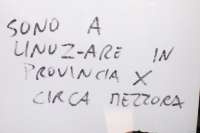 SONO A
LINUZ-ARE IN
PROVINCIA X
CIRCA MEZZORA